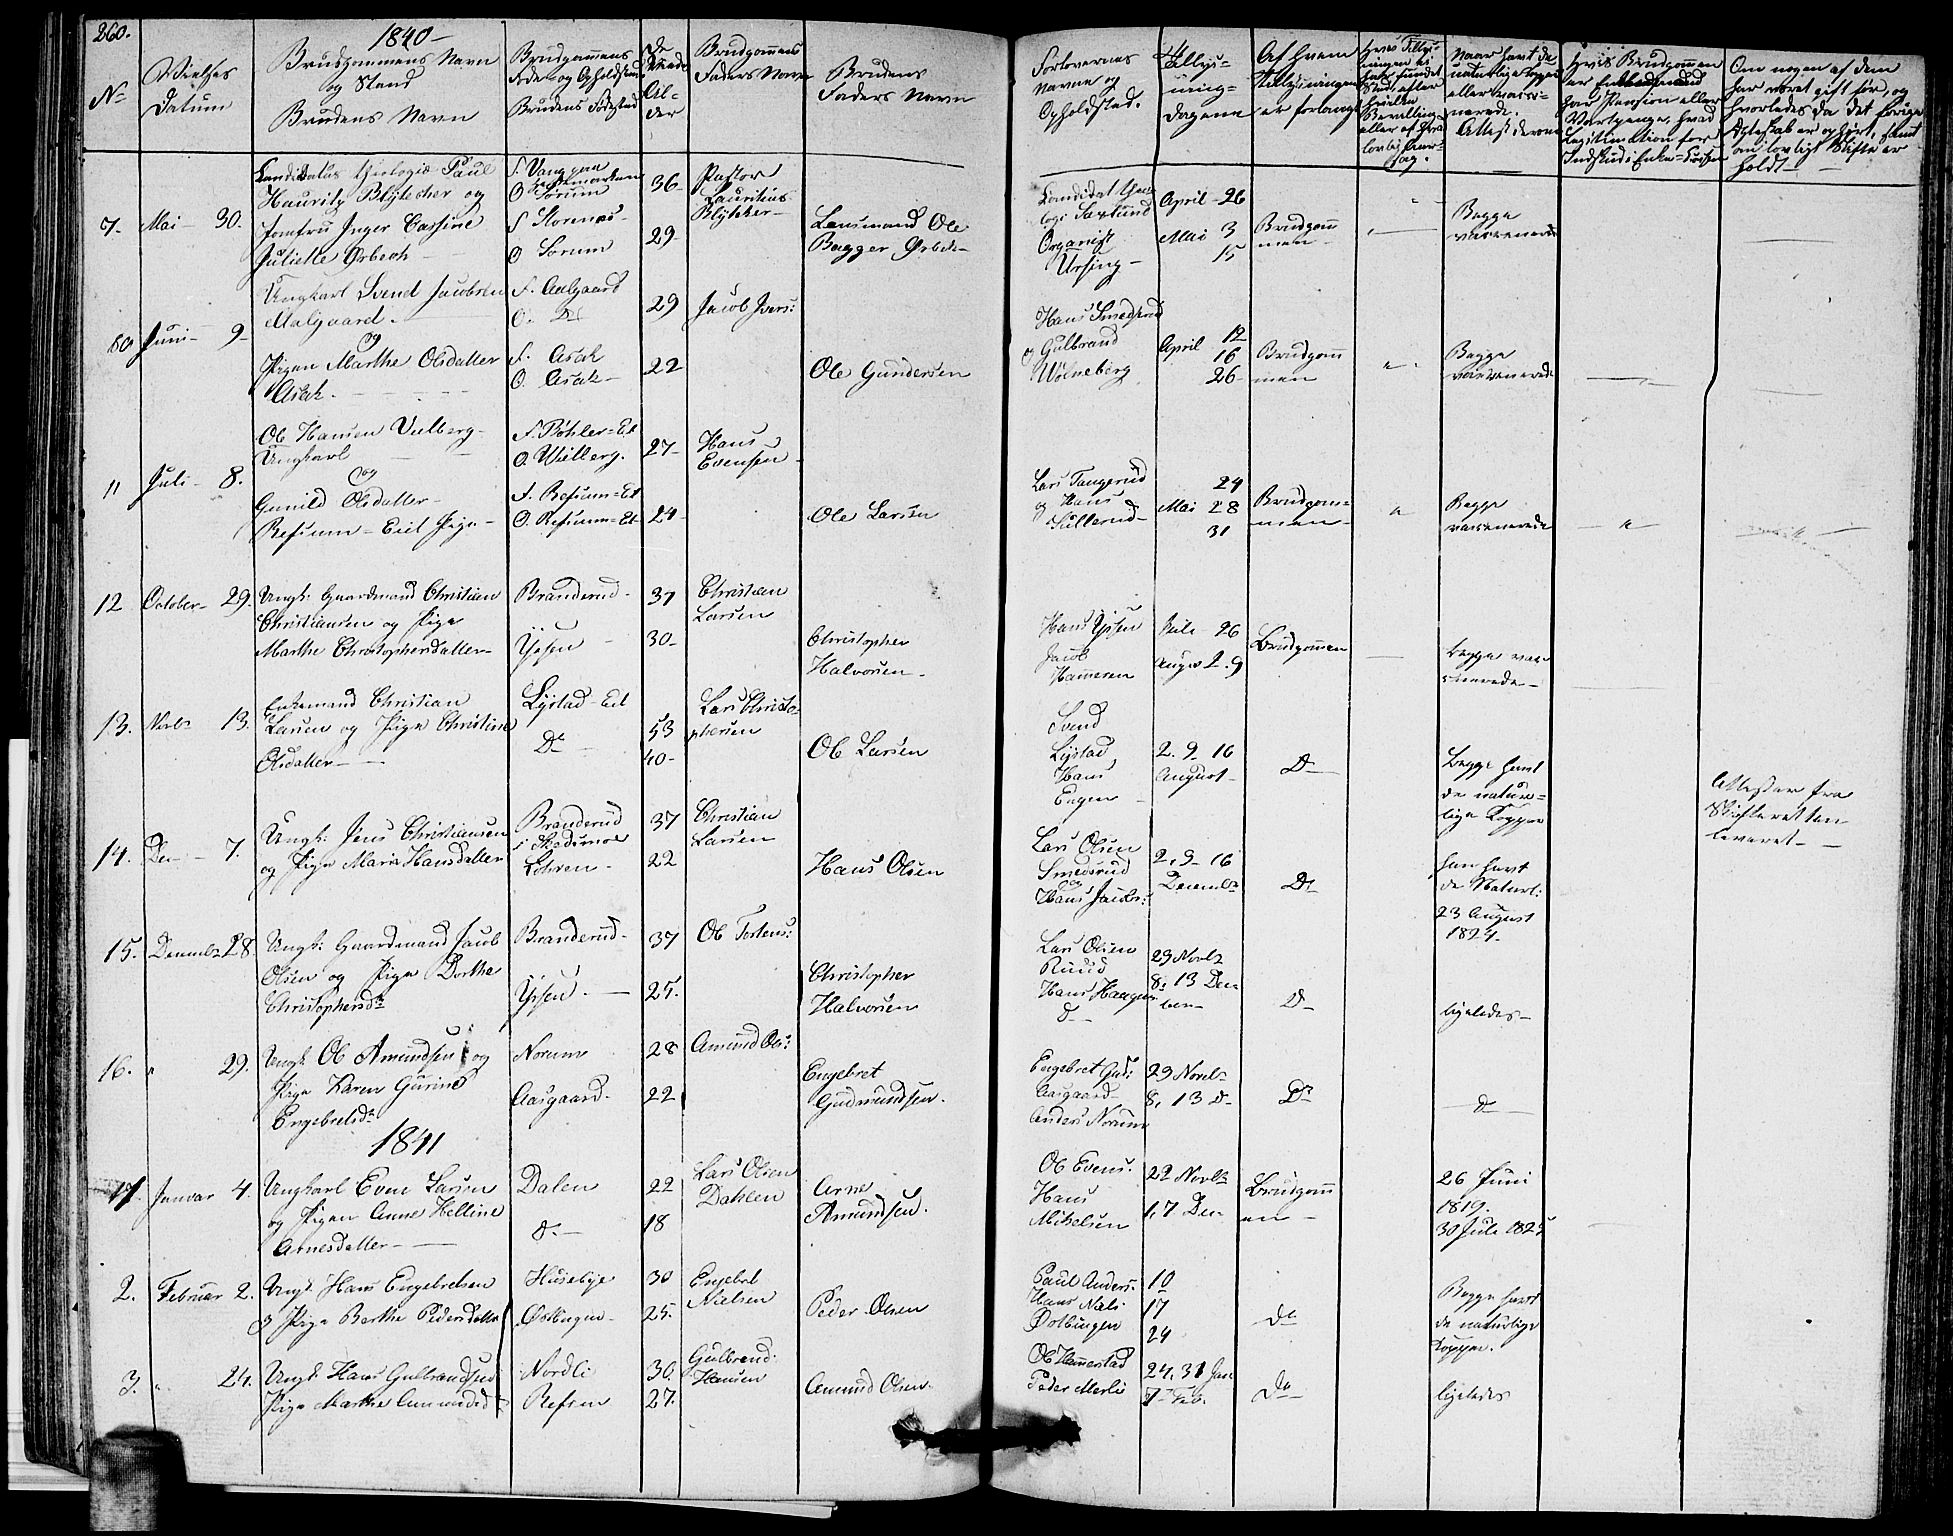 260.
1840
No
Vielses
Datum
Brudgommens Navn
og Stand
Brudens Navn
Brudgommens
Føde og Opholdsted
Brudens Fødested
Al-
der
Brudgommens
Faders Navn
Brudens
Faders Navn
Forlovernes
Navne og
Opholdsted.
Tillys-
nings-
Dagene
Af hvem
Tillysningen
er forlangt
Naar havt de
naturlige Kopper
eller vaxi-
nerede.
Attest derom
Hvis Brudgommen
har Pension eller
Vartpenge, hvad
Legitimation for
Om nogen af dem
har været gift før, og
hvorledes da det forrige
Ægteskab er ophørt, samt
om lovligt Skifte er
holdt
Candidatus Theologiæ Paul
Blytecher og
7. Mai 30. Jomfru Inger Cathrine
Juliette Ørbech
O Sørum
36
29
Pastor
Lauritius
Lensmand Ole
Bagger Ørbech
Organist
Ursing
April 26
Mai 3
15
Brudgom
men
Begge
vaxenerede
Ungkarl Svend Jacobsen
Aalgaard
10 Juni 9
og
Pigen Marthe Olsdatter
Asak.
F. Aalgaard
O. Do
F. Asak
O. Asak
29
22
Jacob Ivers:
Ole Gundersen
Hans Smedsrud
og Gulbrand
Wolneberg
April 12
16
26
Brudgom
men
Begge
vaxenerede
Ole Hansen Vulberg
Ungkarl
og
11 Juli 8.
Gunild Olsdatter
Refsum-Eiet Pige
F. Bøhler-Et
O. Wulberg.
F. Refsum-Et
O. Refsum-Et
27
24
Hans
Evensen
Ole Larsen
Lars Tangerud
og Hans
Sullerud
Mai 24
28
31
Brudgom-
men
Begge
vaxenerede
12 October 29. Ungk: Gaardmand Christian
Christiansen og Pige
Marthe Christophersdatter
Branderud
Ypsen
37
30
Christian
Larsen
Christopher
Halvorsen
Hans Ypsen
Jacob
Hameren
Juli 26
August 2. 9
Brudgommen
Begge vax-
enerede
13. Novbr 13. Enkemand Christian
Larsen og Pige Christine
Olsdatter
Lystad-Eiet
Do
53
40
Lars Christo-
phersen
Ole Larsen
Svend
Lystad
Hans
Engen
2. 9. 16
August
Do
Begge havt
de natur-
lige Kopper
Attester fra
Skifteretten
leveret
14. Den 7. Ungk: Jens Christiansen
og Pige Maria Hansdatter
Branderud
i Skedsmoe
Lohren
37
22
Christian
Larsen
Hans Olsen
Lars Olsen
Smedsrud
og
Hans Jacobs:
2. 9. 16
Decembr
Do
han havt
de Naturl:
23 August
1824.
15. Decembr 28. Ungk: Gaardmand Jacob
Olsen og Pige Dorthe
Christophersdr
Branderud
Ypsen
37
25.
Ole Torstens:
Christopher
Halvorsen
Lars Olsen
Ruud
Hans Haugen
Do
29 Novbr
8, 13 Dec
ber
Do
ligeledes
16. " 29. Ungk: Ole Amundsen og
Pige Karen Gurine
Engebretsdr
Norum
Aasgaard.
28
22
Amund Ols:
Engebret
Gudmundsen.
Engebret Gud:
Aasgaard
Anders Norum
29 Novbr
8, 13 Do
Do
Do
1841
1. Januar 4. Ungkarl Even Larsen
og Pigen Anne Helline
Arnesdatter
Dalen
Do
22
18
Lars Olsen
Dahlen
Arne
Amundsen.
Ole Evens:
Hans
Mikelsen
22 Novbr
1, 7 Dec
Brudgom
en
26 Juni
1819.
30 Juli 1823
2. Februar 2. Ungk. Hans Engebretsen
og Pige Berthe Pedersdatter
Husebye
Østbugen
30
25.
Engebret
Nielsen
Peder Olsen
Paul Anders:
Hans Niels:
Østbugen
10
17
24
Do
Begge havt
de naturlige
Kopper.
3. " 24. Ungk. Hans Gulbrandsen
Pige Marthe Amundsd
Nordli
Refsum
30.
27.
Gulbrand
Hansen
Amund Olsen.
Ole Hammerstad
Peder Merli
24, 31 Jan
7 Feb.
Do
ligeledes